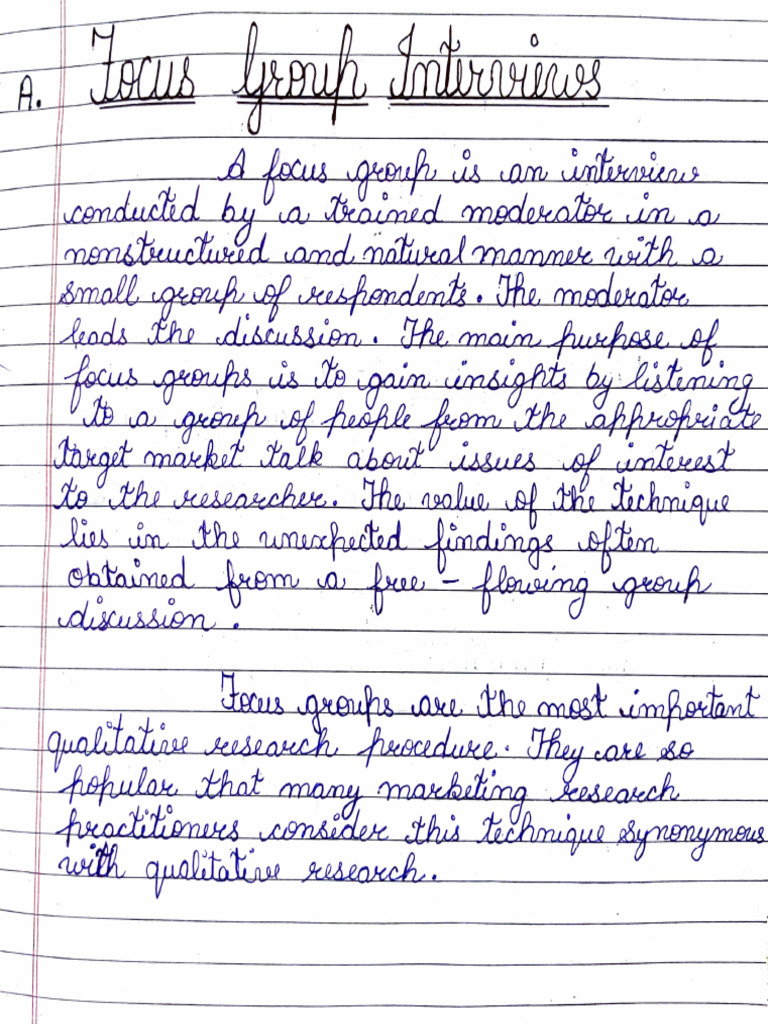 A. Focus Group Interviews
A focus group is an interview
conducted by a trained moderator in a
nonstructured and natural manner with a
small group of respondents. The moderator
leads the discussion. The main purpose of
focus groups is to gain insights by listening
to a group of people from the appropriate
target market talk about issues of interest
to the researcher. The value of the technique
lies in the unexpected findings often
obtained from a free - flowing group
discussion.
Focus groups are the most important
qualitative research procedure. They are so
popular that many marketing research
practitioners consider this technique synonymous
with qualitative research.